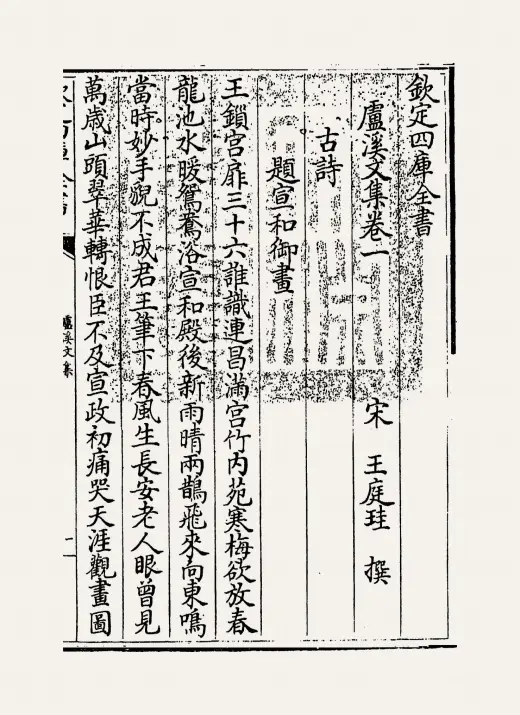 欽定四庫全書
盧溪文集卷一
宋 王庭珪 撰
古詩
題宣和御畫
玉鎖宫扉三十六誰識連昌滿宫竹内苑寒梅欲放春
龍池水暖鴛鴦浴宣和殿後新雨晴兩鵲飛來向東鳴
當時妙手貌不成君王筆下春風生長安老人眼曽見
萬歳山頭翠華轉恨臣不及宣政初痛哭天涯觀畫圖
盧溪文集